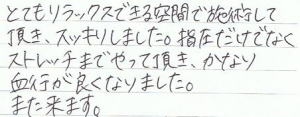 とてもリラックスできる空間で施術して
頂き、スッキリしました。指圧だけでなく
ストレッチまでやって頂き、かなり
血行が良くなりました。
また来ます。